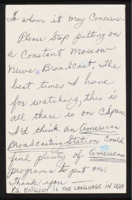 To whom it May Concern
Please Stop putting on
a Constant Moscow
News Broadcast, The
best times I have
for watching, this is
all there is on CSpan
I'd think an American
Broadcasting Station could
find plenty of American
programs to put on.
Thank you
P.S. ENGLISH IS THE LANGUAGE IN USA